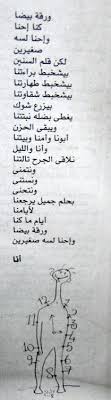 ورقة بيضا
كنا إحنا
وإحنا لسه
صغيرين
لكن قلم السنين
بيشخبط براءتنا
بيشخبط طهارتنا
بيشخبط شقاوتنا
بيزرع شوك
يغطى بضله نبتتنا
ويبقى الحزن
أبونا وأمنا وبيتنا
وأنا والليل
نلاقى الجرح تالتنا
ونتمنى
ونستنى
ونحن
بحلم جميل يرجعنا
لأيامنا
أيام ما كنا
ورقة بيضا
وإحنا لسه صغيرين
أنا
12
11
10
9
8
7
6
5
4
3
2
1